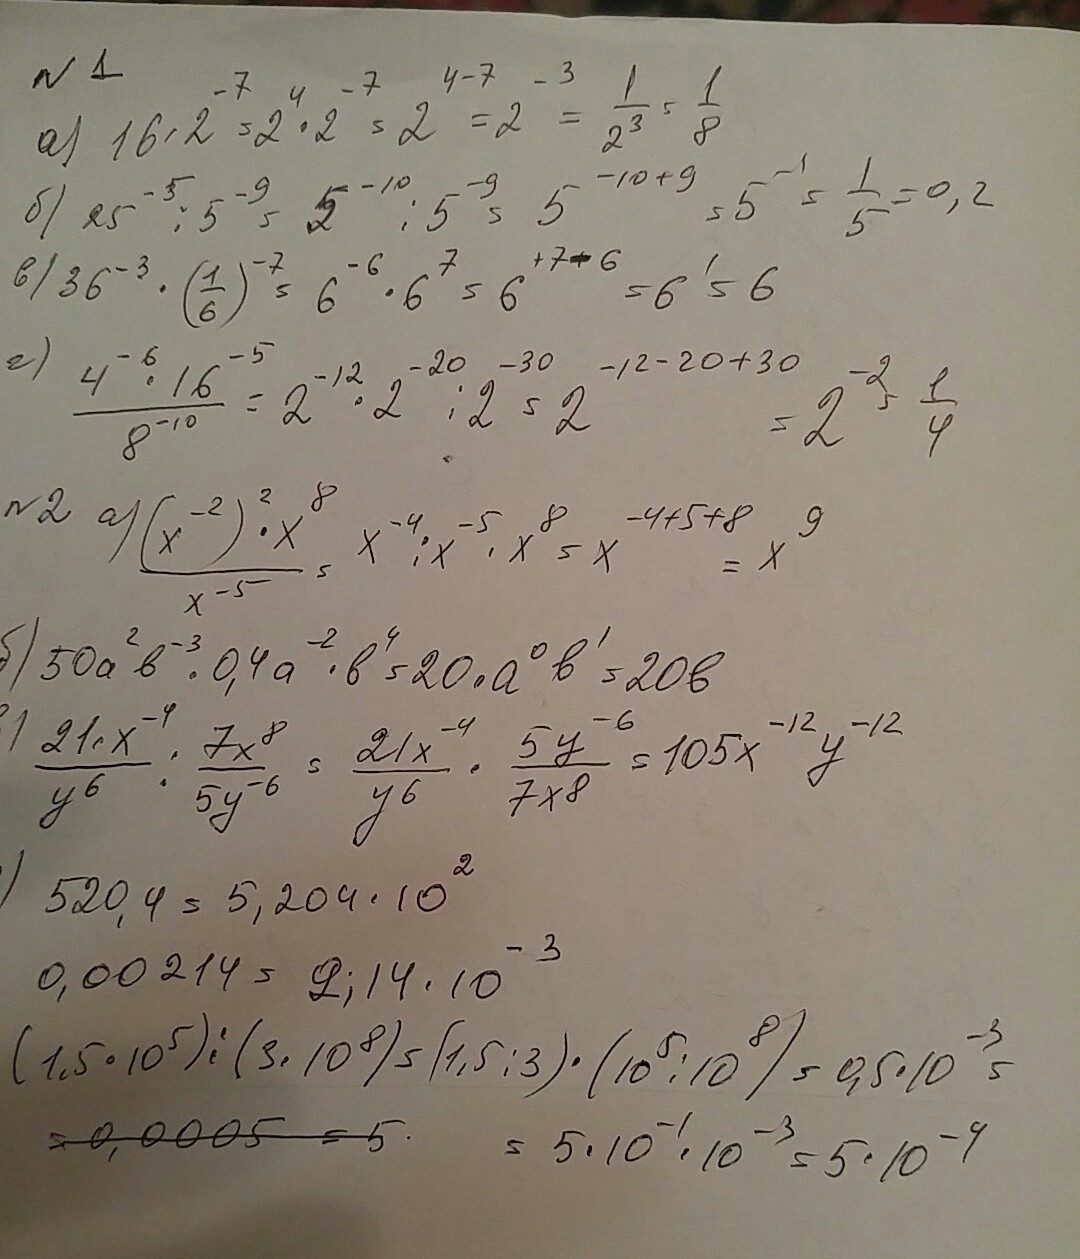 №1
а) 16·2⁻⁷=2⁴·2⁻⁷=2⁴⁻⁷=2⁻³=1/2³=1/8
б) 25⁻⁵:5⁻⁹=5⁻¹⁰:5⁻⁹=5⁻¹⁰⁺⁹=5⁻¹=1/5=0,2
в) 36⁻³·(1/6)⁻⁷=6⁻⁶·6⁷=6⁺⁷⁻⁶=6¹=6
г) (4⁻⁶·16⁻⁵)/8⁻¹⁰=2⁻¹²·2⁻²⁰:2⁻³⁰=2⁻¹²⁻²⁰⁺³⁰=2⁻²=1/4
№2 а) ((x⁻²)²·x⁸)/x⁻⁵=x⁻⁴:x⁻⁵·x⁸=x⁻⁴⁺⁵⁺⁸=x⁹
б) 50a²b⁻³·0,4a⁻²·b⁴=20·a⁰b¹=20b
в) (21·x⁻⁴)/y⁶:(7x⁸)/(5y⁻⁶)=(21x⁻⁴)/y⁶·(5y⁻⁶)/(7x8)=105x⁻¹²y⁻¹²
) 520,4=5,204·10²
0,00214=2,14·10⁻³
(1,5·10⁵):(3·10⁸)=(1,5:3)·(10⁵:10⁸)=0,5·10⁻³=
=0,0005=5· =5·10⁻¹·10⁻³=5·10⁻⁴